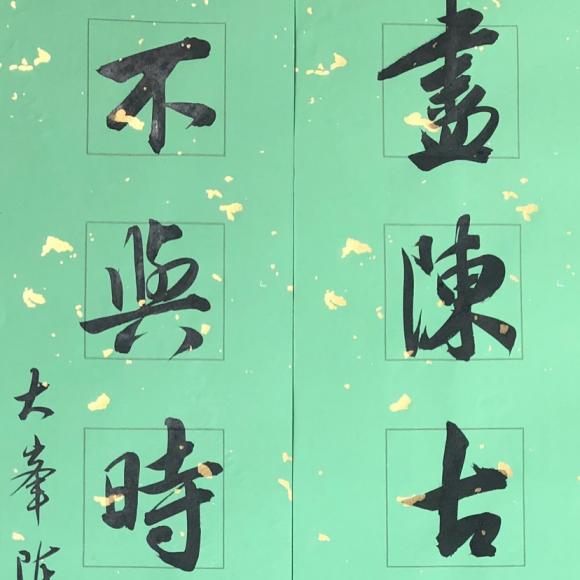 盡陳古
不與時
大峯